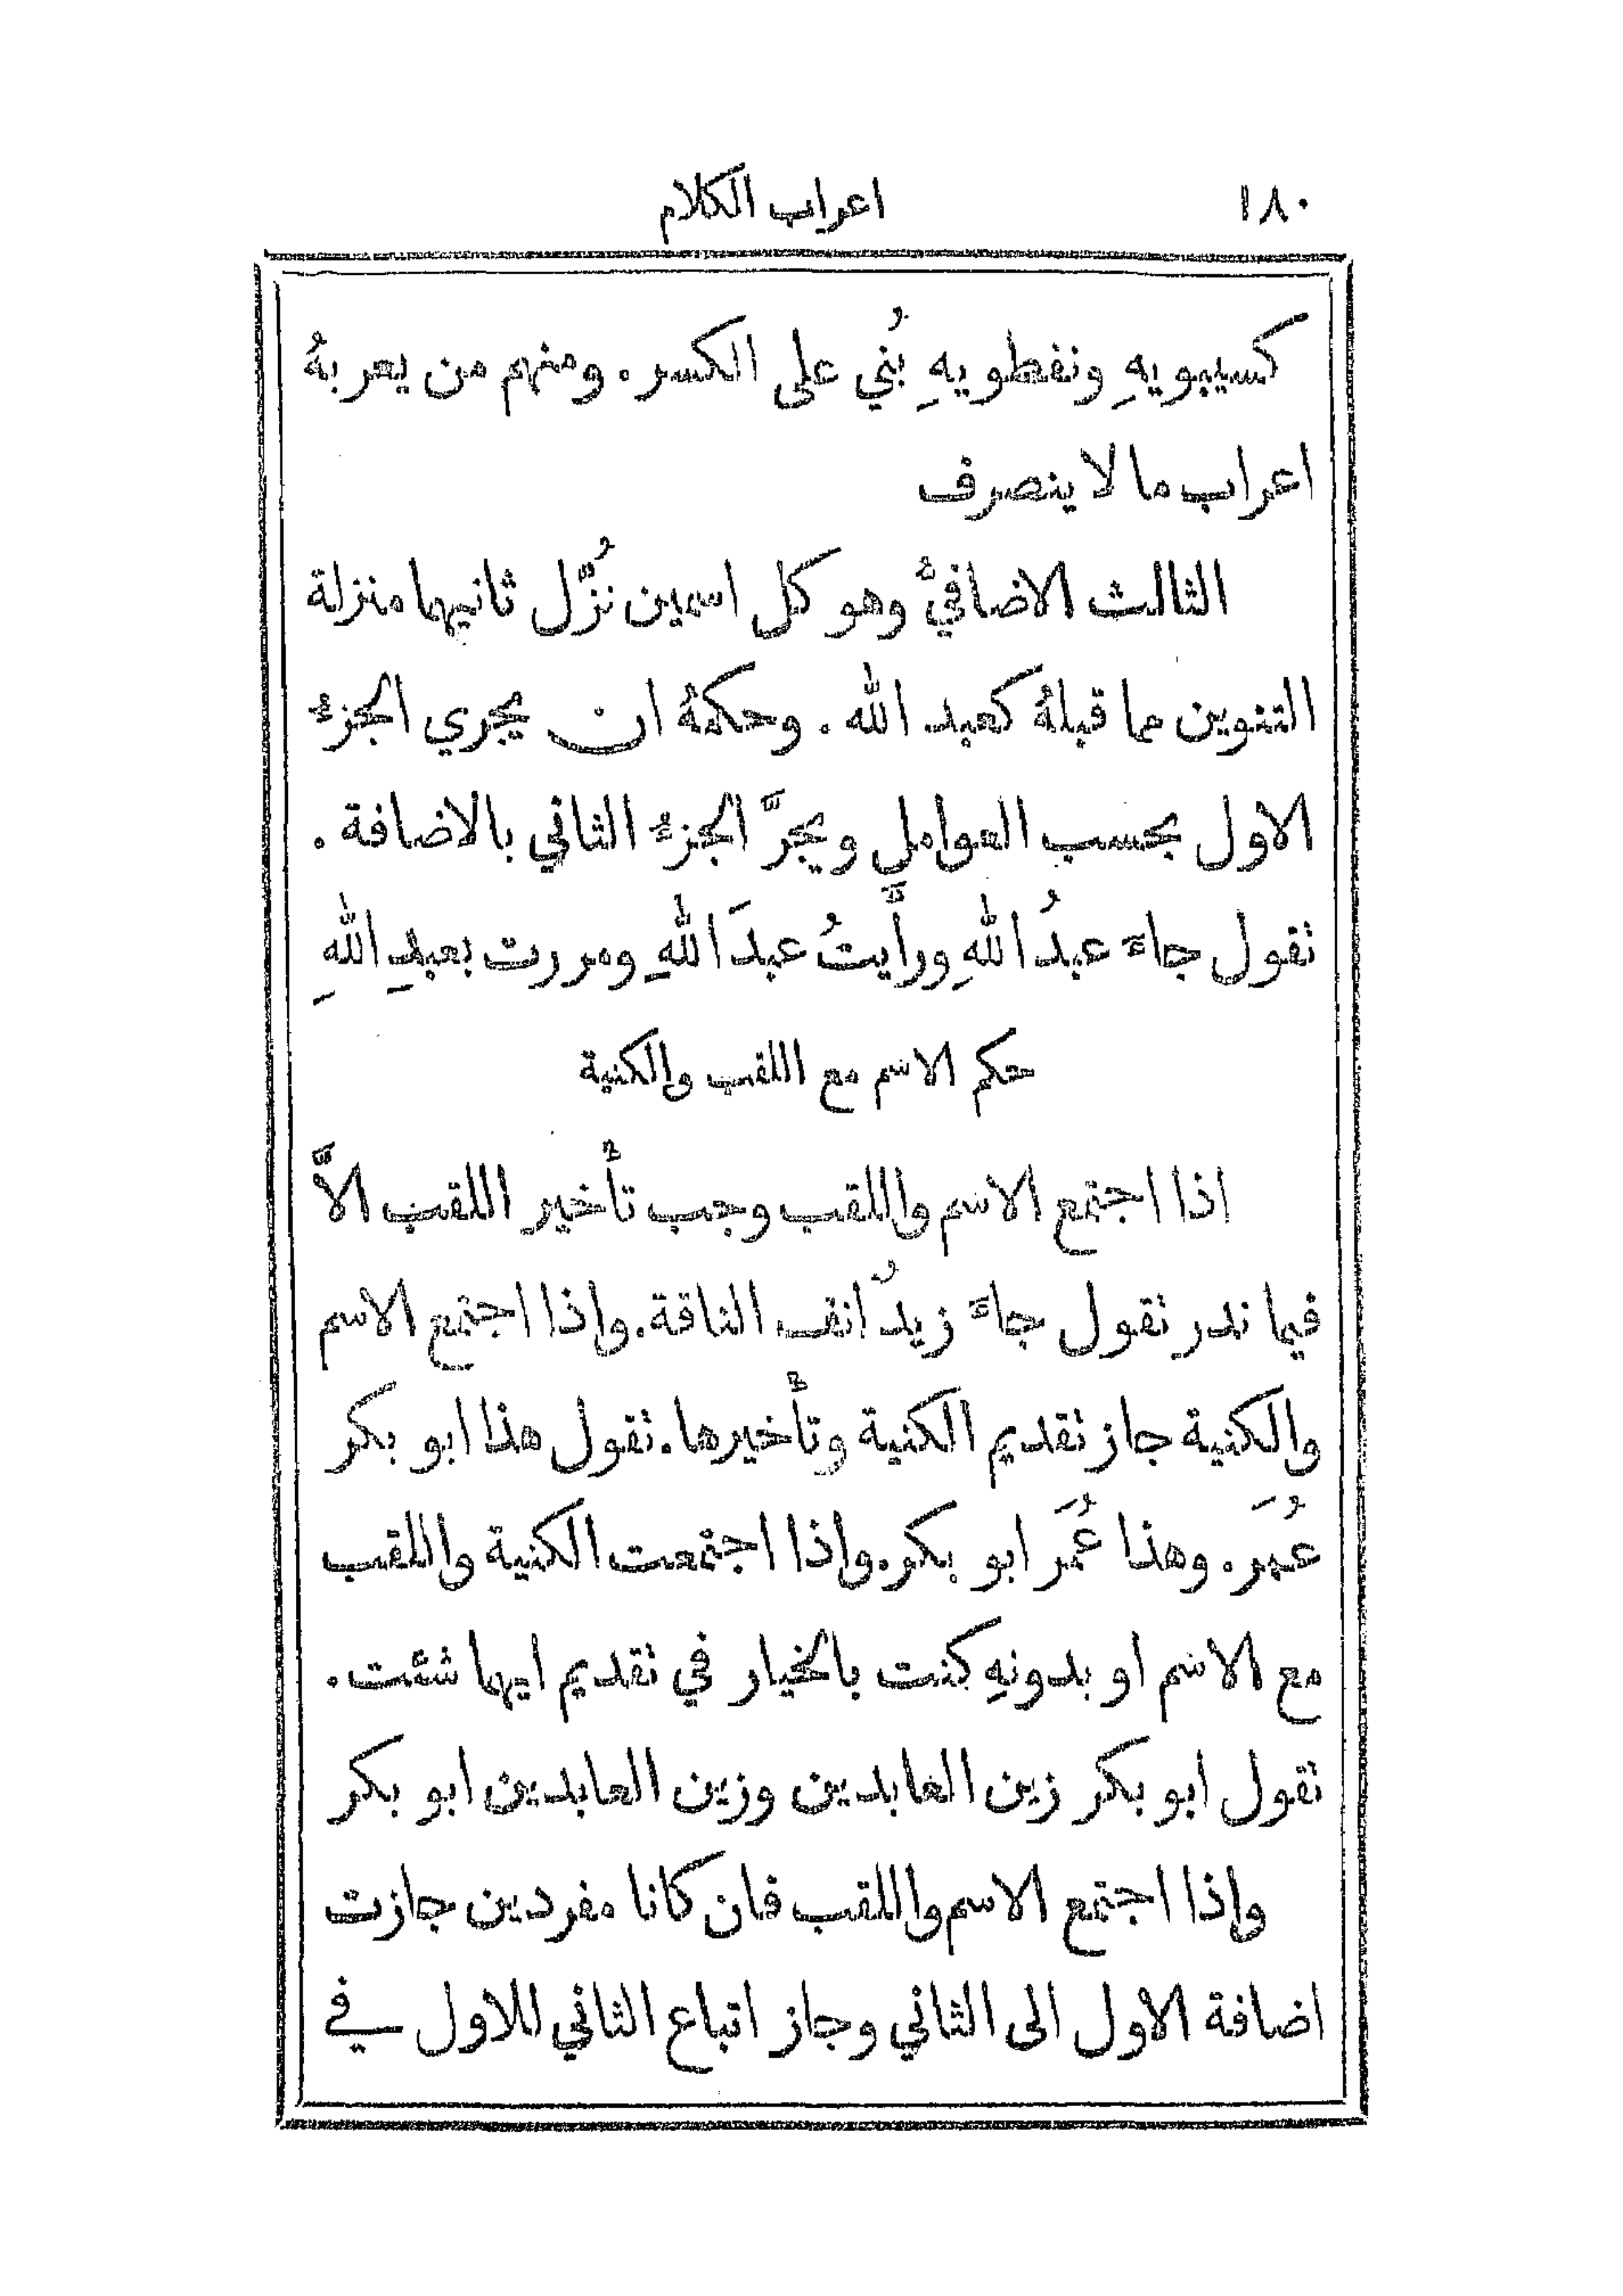 ١٨٠
اعراب الكلام
كسيبويهِ ونفطويهِ بُني على الكسر. ومنهم من يعربهُ
اعراب ما لا ينصرف
الثالث الاضافيُّ وهو كل اسمين نُزّل ثانيهما منزلة
التنوين مما قبلهُ كعبد الله. وحكمهُ ان يجري الجزءُ
الاول بحسب العوامل ويجرَّ الجزءُ الثاني بالاضافة.
تقول جاءَ عبدُ اللهِ ورأَيتُ عبدَ اللهِ ومررت بعبدِ اللهِ
حكم الاسم مع اللقب والكنية
اذا اجتمع الاسم واللقب وجب تأخير اللقب الاَّ
فيما ندر تقول جاءَ زيدٌ انف الناقة. واذا اجتمع الاسم
والكنية جاز تقديم الكنية وتأخيرها. تقول هذا ابو بكر
عُمَر. وهذا عُمَر ابو بكر. واذا اجتمعت الكنية واللقب
مع الاسم او بدونهِ كنت بالخيار في تقديم ايهما شئت.
تقول ابو بكر زين العابدين وزين العابدين ابو بكر
واذا اجتمع الاسم واللقب فان كانا مفردين جازت
اضافة الاول الى الثاني وجاز اتباع الثاني للاول في